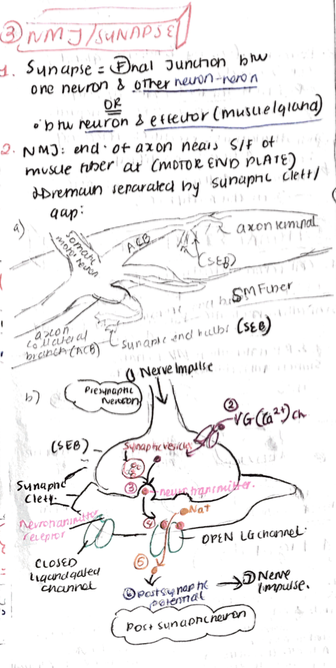 ③ NMJ/SYNAPSE
1. Synapse = Fnal Junction btw
one neuron & other neuron-neron
OR
• btw neuron & effector (muscle/gland)
2. NMJ: end of axon nears S/F of
muscle fiber at (MOTOR END PLATE)
& remain separated by synaptic cleft/
gap:
a)
Somatic
motor neuron
ACB
axon terminal
(SEB)
SM Fiber
axon
collateral
branch (ACB)
synaptic end bulbs (SEB)
① Nerve Impulse
b)
Presynaptic
Neuron
②
VG (Ca²⁺) ch
(SEB)
Synaptic vesicle
Synaptic
cleft
③
neurotransmitter
Neurotransmitter
receptor
④
Na+
OPEN LG channel
CLOSED
ligand gated
channel
⑤
⑥ postsynaptic
potential
⑦ Nerve
Impulse.
Post synaptic neuron